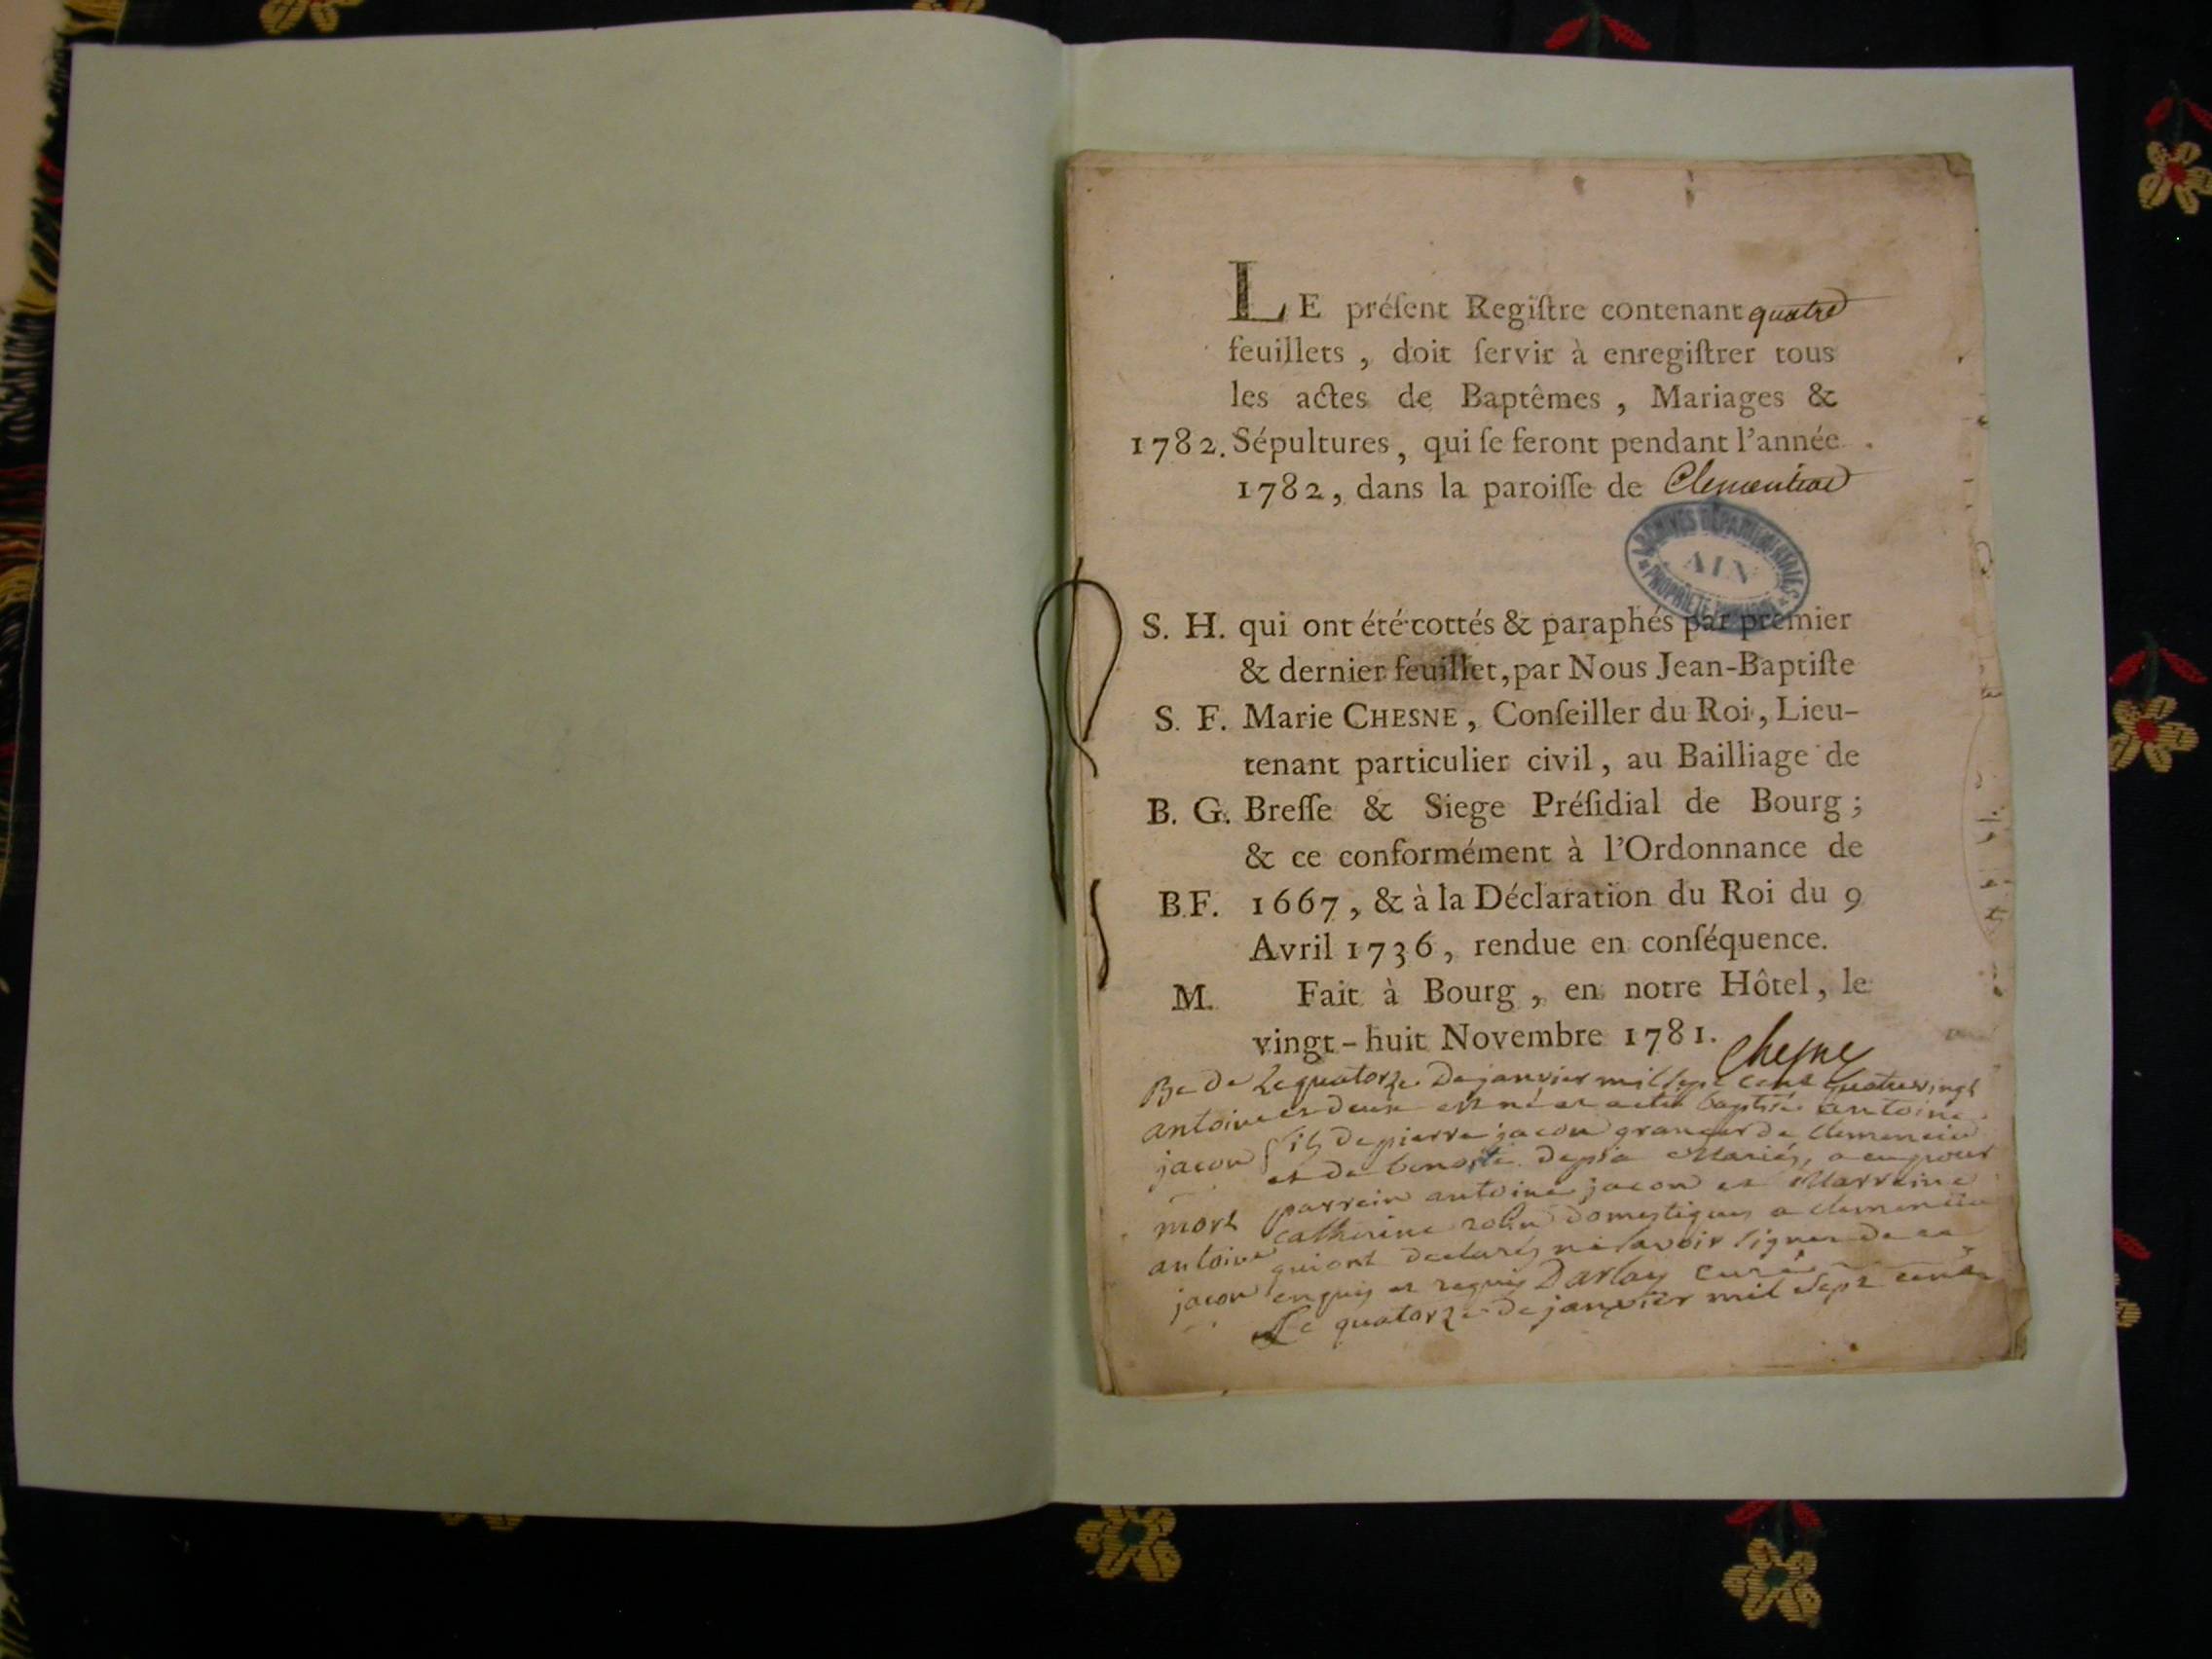 LE préſent Regiſtre contenant quatre
feuillets, doit ſervir à enregiſtrer tous
les actes de Baptêmes, Mariages &
1782. Sépultures, qui ſe feront pendant l'année
1782, dans la paroiſſe de Clemencia
ARCHIVES DÉPARTEMENTALES
AIN
PROPRIÉTÉ PUBLIQUE
S. H. qui ont été cottés & paraphés par premier
& dernier feuillet, par Nous Jean-Baptiſte
S. F. Marie CHESNE, Conſeiller du Roi, Lieu-
tenant particulier civil, au Bailliage de
B. G. Breſſe & Siege Préſidial de Bourg;
& ce conformément à l'Ordonnance de
B.F. 1667, & à la Déclaration du Roi du 9
Avril 1736, rendue en conſéquence.
M. Fait à Bourg, en notre Hôtel, le
vingt-huit Novembre 1781. Chesne
Be De Le quatorze De janvier mil sept cent quatrevingt
antoine et deux est né et a eté baptisé antoine
jacou fils de pierre jacou granger de clemencia
et de benoite Mariés, a eu pour
mort parrein antoine jacou et Marreine
antoine catherine robin domestiques a clemencia
jacou qui ont declarés ne savoir signer de ce
enquis et requis Darlay curé
Le quatorze de janvier mil sept cent